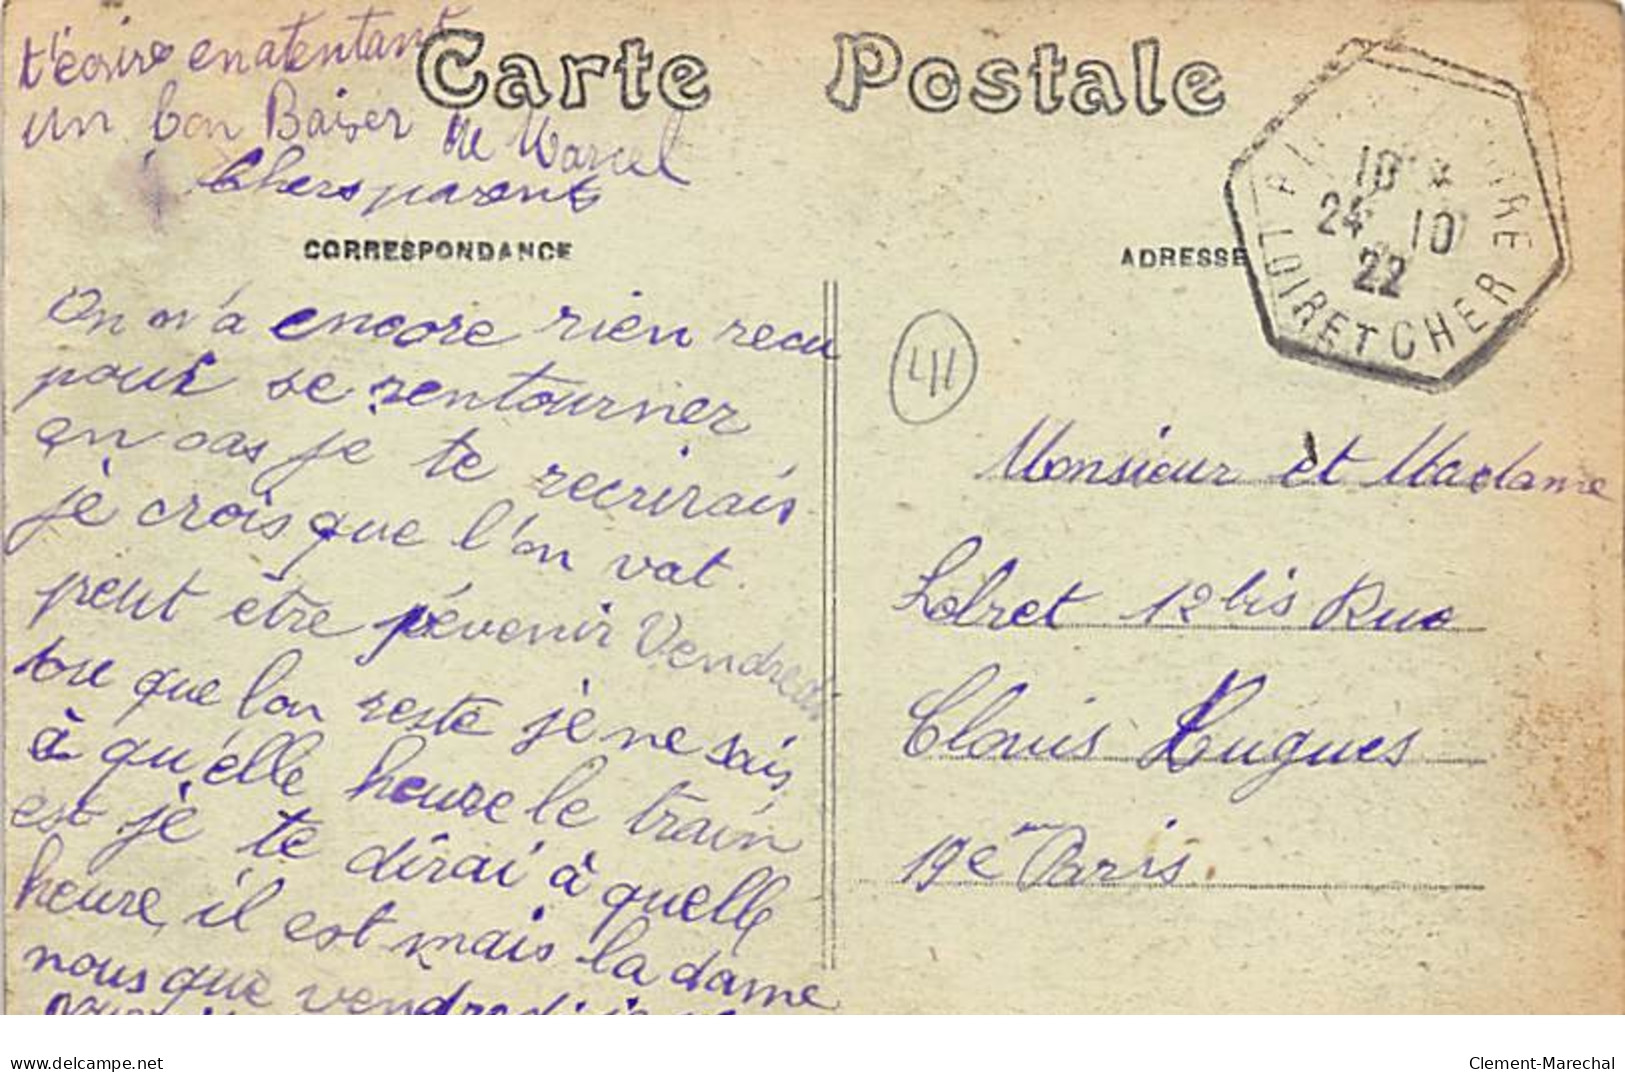 t'écrire en atentant
un bon Baiser de Marcel
Chers parents
Carte Postale
CORRESPONDANCE
On n'a encore rien recu
pour se rentourner
en cas je te recrirais
je crois que l'on vat
peut etre révenir Vendredi
que lon reste je ne sais
à qu'elle heure le train
est je te dirai à quelle
heure il est mais la dame
nous que vendredi
ADRESSE
10
24 10
22
LOIR ET CHER
41
Monsieur et Madame
Lolret 12 bis Rue
Clovis Hugues
19e Paris.
delcampe.net
Clement-Marechal